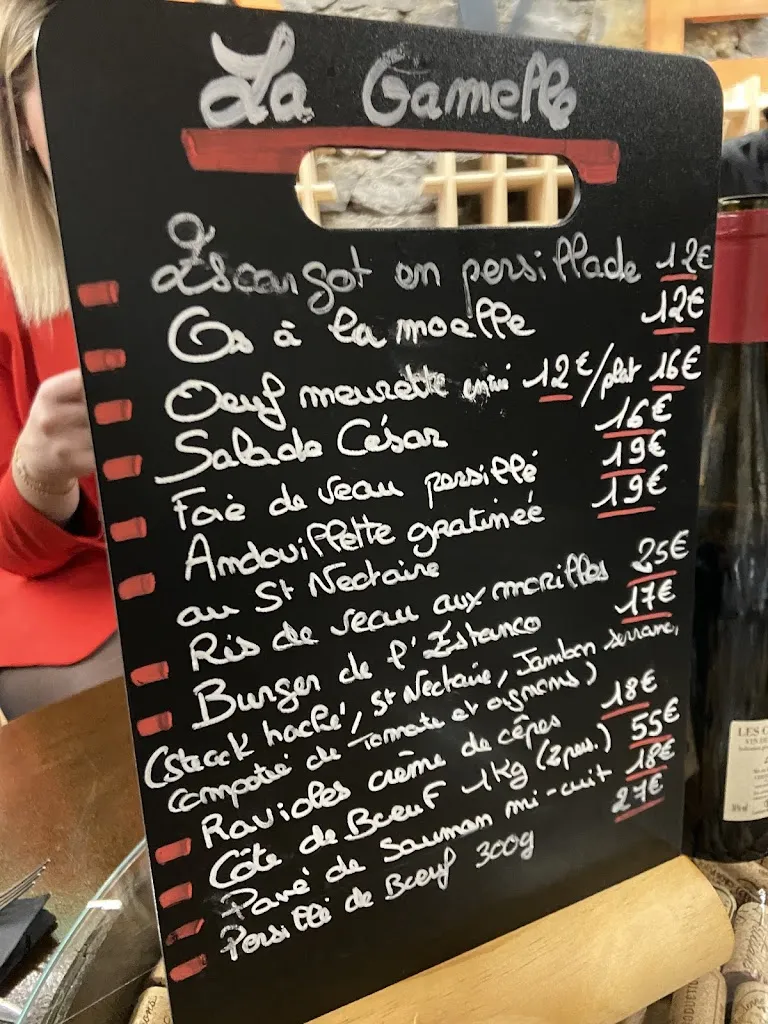 La Gamelle
Escargot en persillade 12€
Os à la moelle 12€
Oeuf meurette entrée 12€/plat 16€
Salade César 16€
Foie de veau persillé 19€
Andouillette gratinée 19€
au St Nectaire
Ris de veau aux morilles 25€
Burger de l'Estanco 17€
(steack haché, St Nectaire, Jambon serrano,
compotée de Tomate et oignons)
Ravioles crème de cèpes 18€
Côte de Boeuf 1Kg (2 pers.) 55€
Pavé de Saumon mi-cuit 18€
Persillé de Boeuf 300g 27€
LES